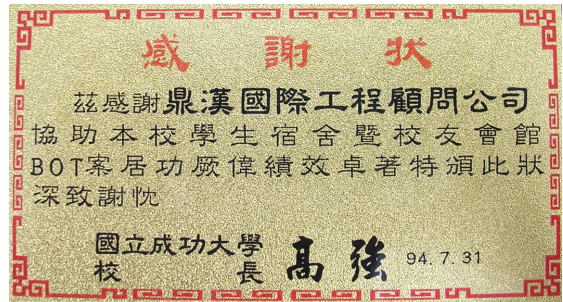 感謝狀
茲感謝鼎漢國際工程顧問公司
協助本校學生宿舍暨校友會館
BOT案居功厥偉績效卓著特頒此狀
深致謝忱
國立成功大學
校長 高強 94.7.31